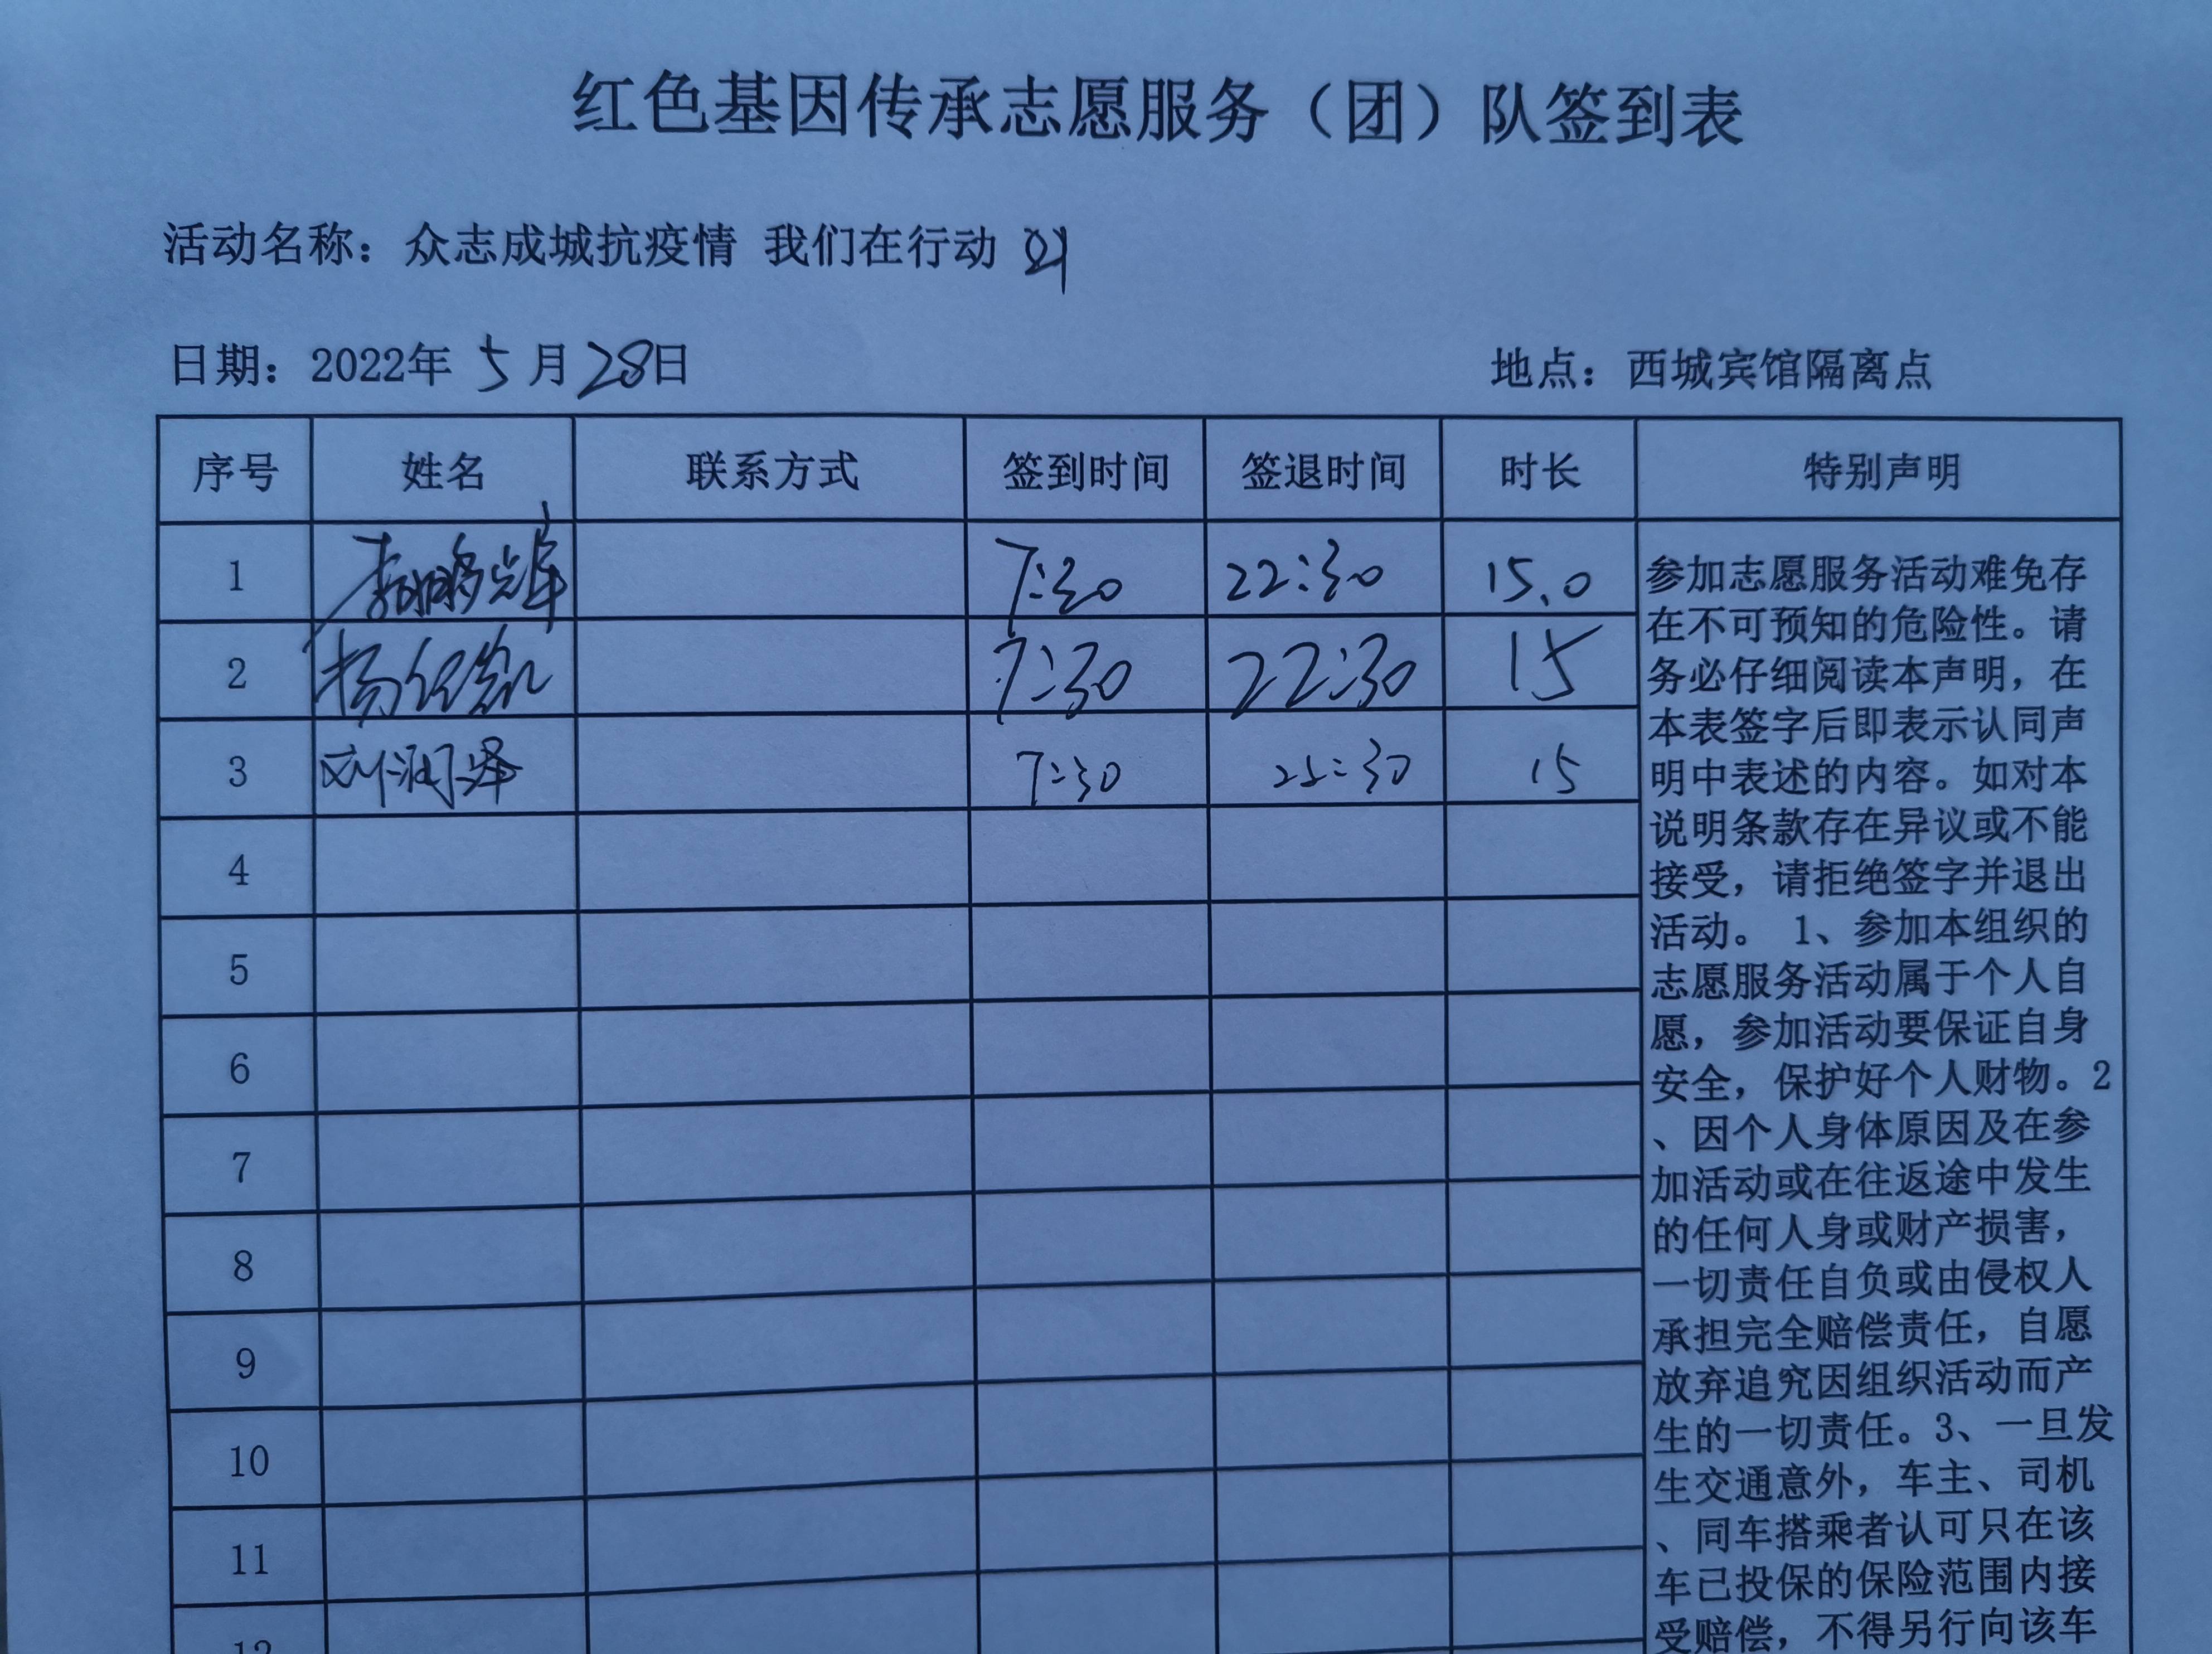 红色基因传承志愿服务（团）队签到表
活动名称：众志成城抗疫情 我们在行动
日期：2022年 5 月 28日 地点：西城宾馆隔离点
序号 姓名 联系方式 签到时间 签退时间 时长 特别声明
1 7:30 22:30 15.0
2 杨 凯 7:30 22:30 15
3 刘润泽 7:30 :30 15
4
5
6
7
8
9
10
11
12
参加志愿服务活动难免存
在不可预知的危险性。请
务必仔细阅读本声明，在
本表签字后即表示认同声
明中表述的内容。如对本
说明条款存在异议或不能
接受，请拒绝签字并退出
活动。 1、参加本组织的
志愿服务活动属于个人自
愿，参加活动要保证自身
安全，保护好个人财物。2
、因个人身体原因及在参
加活动或在往返途中发生
的任何人身或财产损害，
一切责任自负或由侵权人
承担完全赔偿责任，自愿
放弃追究因组织活动而产
生的一切责任。3、一旦发
生交通意外，车主、司机
、同车搭乘者认可只在该
车已投保的保险范围内接
受赔偿，不得另行向该车